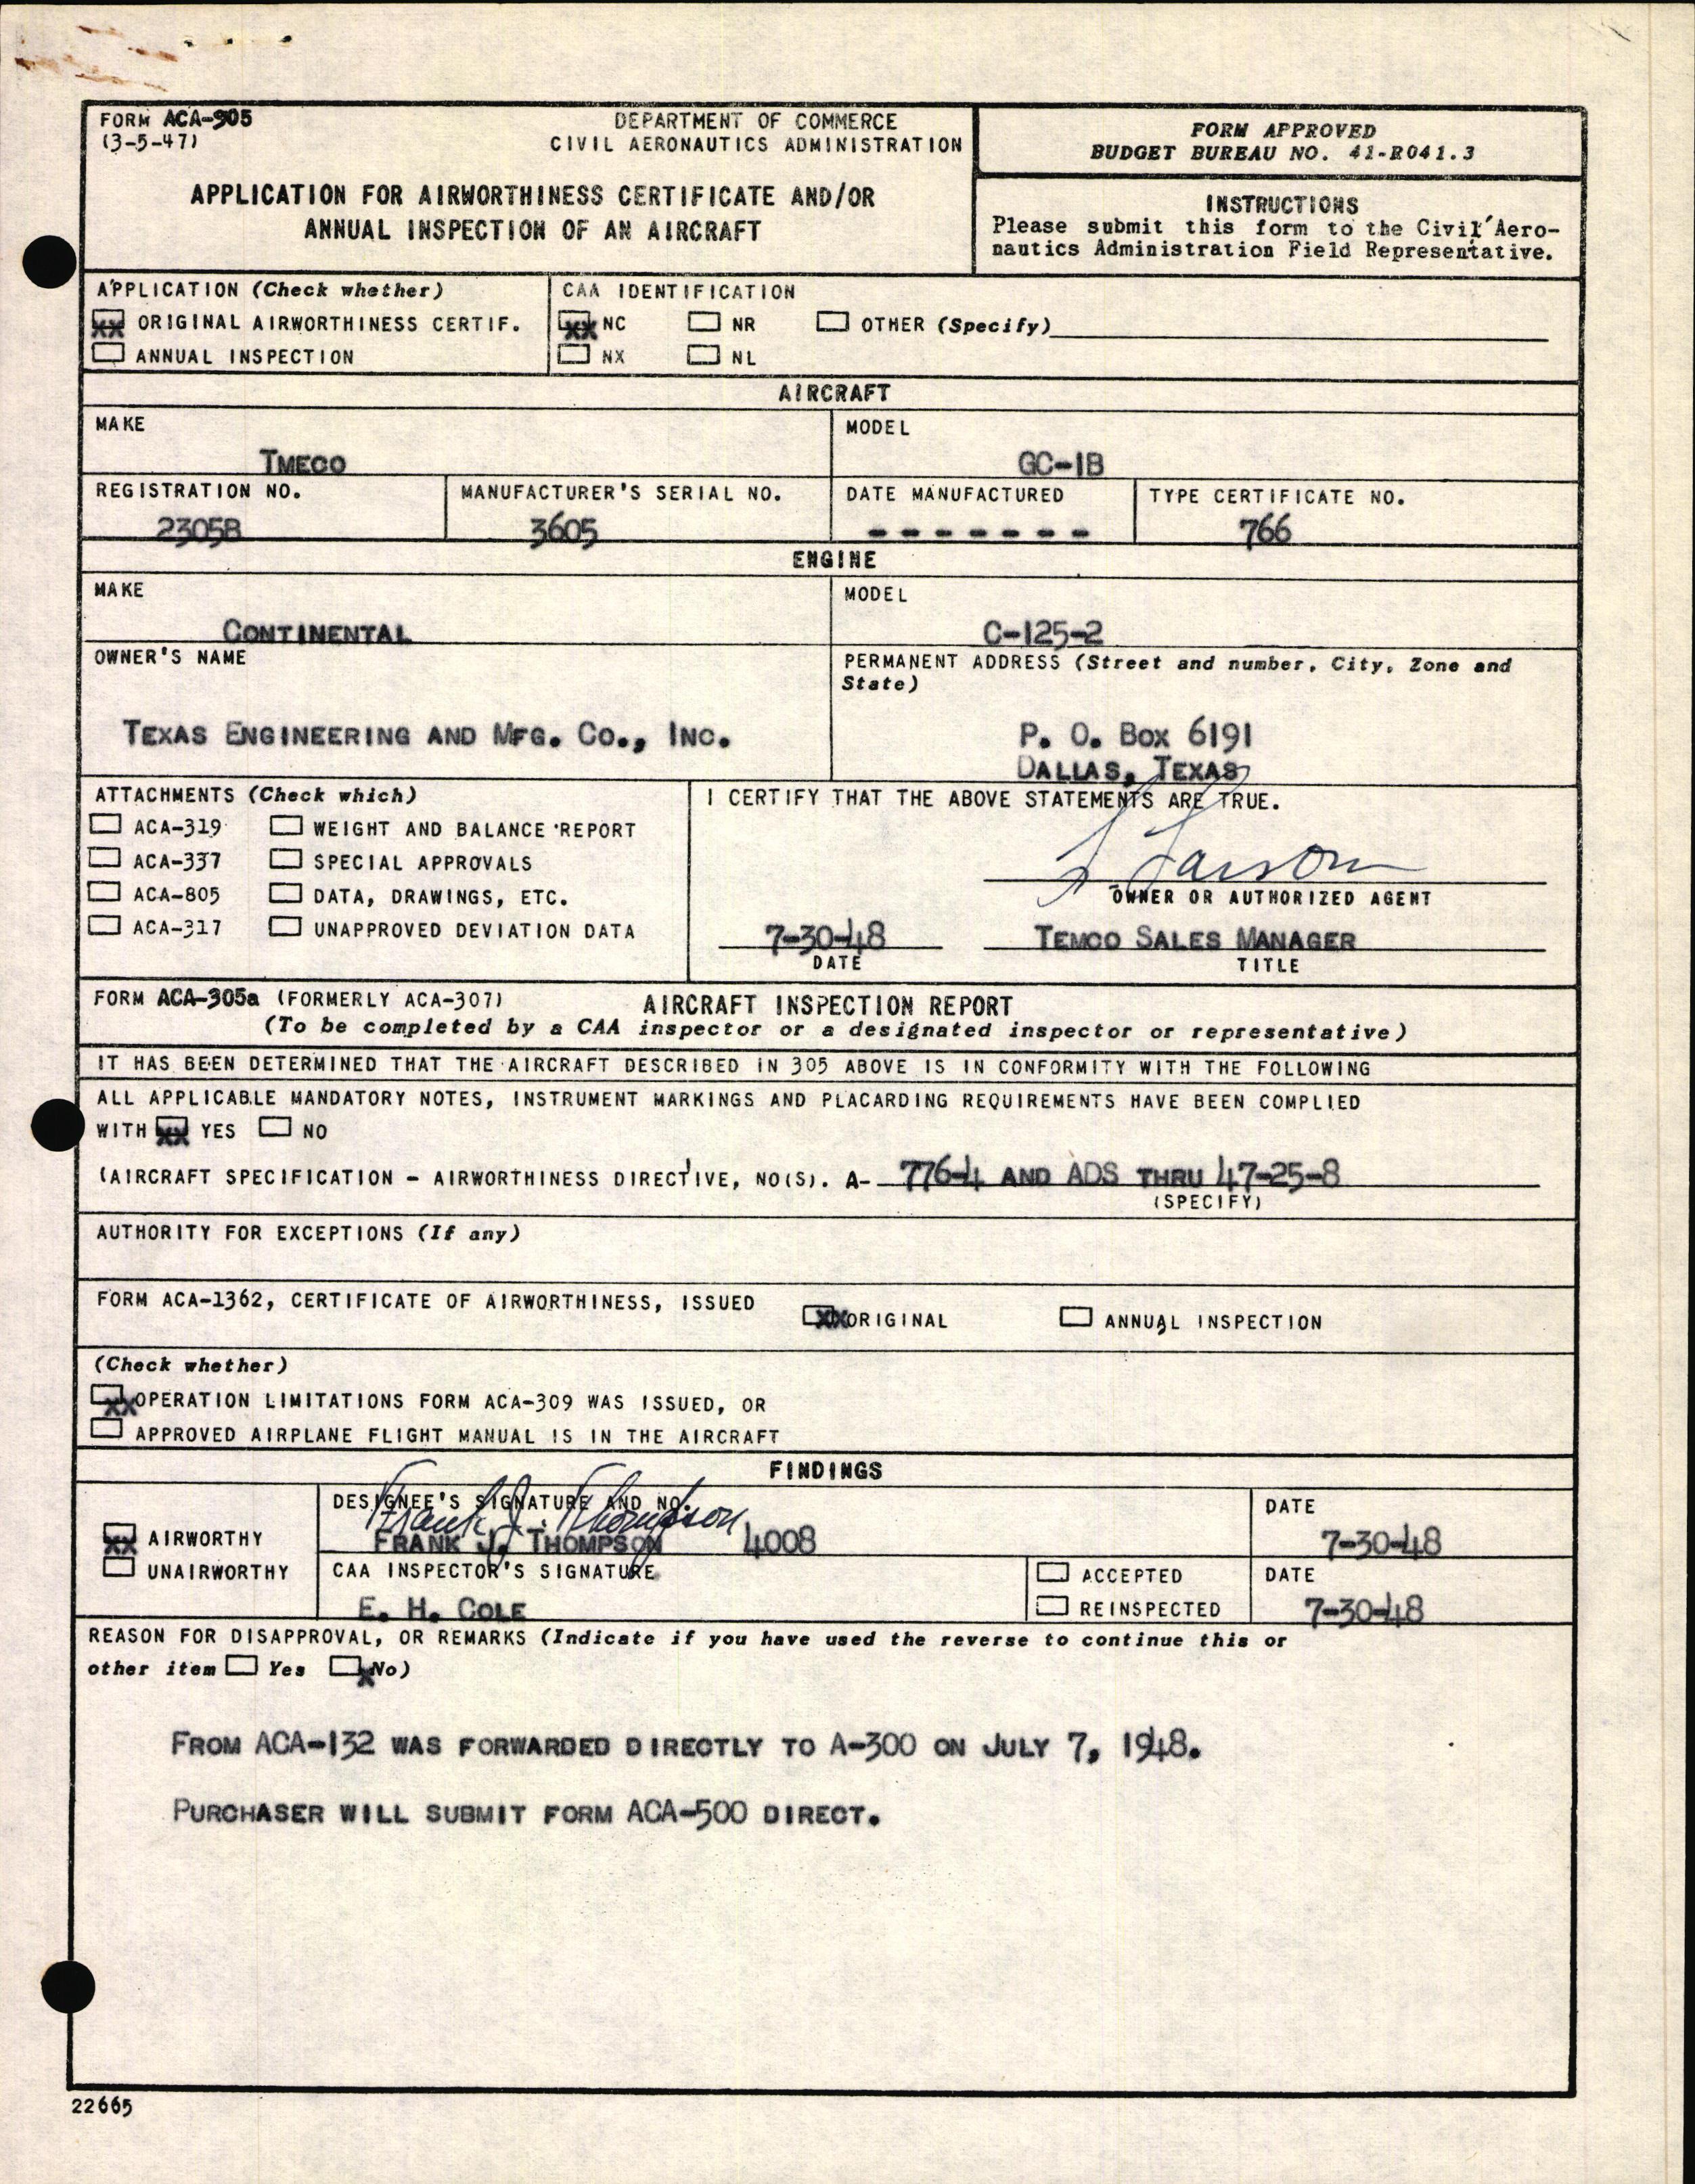 FORM ACA-305
(3-5-47)
DEPARTMENT OF COMMERCE
CIVIL AERONAUTICS ADMINISTRATION
APPLICATION FOR AIRWORTHINESS CERTIFICATE AND/OR
ANNUAL INSPECTION OF AN AIRCRAFT
FORM APPROVED
BUDGET BUREAU NO. 41-R041.3
INSTRUCTIONS
Please submit this form to the Civil Aero-
nautics Administration Field Representative.
APPLICATION (Check whether)
XX ORIGINAL AIRWORTHINESS CERTIF.
ANNUAL INSPECTION
CAA IDENTIFICATION
XX NC NR OTHER (Specify)
NX NL
AIRCRAFT
MAKE
TMECO
MODEL
GC-1B
REGISTRATION NO.
2305B
MANUFACTURER'S SERIAL NO.
3605
DATE MANUFACTURED
- - - - - - -
TYPE CERTIFICATE NO.
766
ENGINE
MAKE
CONTINENTAL
MODEL
C-125-2
OWNER'S NAME
TEXAS ENGINEERING AND MFG. CO., INC.
PERMANENT ADDRESS (Street and number, City, Zone and
State)
P. O. BOX 6191
DALLAS, TEXAS
ATTACHMENTS (Check which)
ACA-319 WEIGHT AND BALANCE REPORT
ACA-337 SPECIAL APPROVALS
ACA-805 DATA, DRAWINGS, ETC.
ACA-317 UNAPPROVED DEVIATION DATA
I CERTIFY THAT THE ABOVE STATEMENTS ARE TRUE.
L Larson
OWNER OR AUTHORIZED AGENT
7-30-48 TEMCO SALES MANAGER
DATE TITLE
FORM ACA-305a (FORMERLY ACA-307) AIRCRAFT INSPECTION REPORT
(To be completed by a CAA inspector or a designated inspector or representative)
IT HAS BEEN DETERMINED THAT THE AIRCRAFT DESCRIBED IN 305 ABOVE IS IN CONFORMITY WITH THE FOLLOWING
ALL APPLICABLE MANDATORY NOTES, INSTRUMENT MARKINGS AND PLACARDING REQUIREMENTS HAVE BEEN COMPLIED
WITH XX YES NO
(AIRCRAFT SPECIFICATION - AIRWORTHINESS DIRECTIVE, NO(S). A- 776-4 AND ADS THRU 47-25-8
(SPECIFY)
AUTHORITY FOR EXCEPTIONS (If any)
FORM ACA-1362, CERTIFICATE OF AIRWORTHINESS, ISSUED XX ORIGINAL ANNUAL INSPECTION
(Check whether)
XX OPERATION LIMITATIONS FORM ACA-309 WAS ISSUED, OR
APPROVED AIRPLANE FLIGHT MANUAL IS IN THE AIRCRAFT
FINDINGS
XX AIRWORTHY
UNAIRWORTHY
DESIGNEE'S SIGNATURE AND NO.
Frank J. Thompson
FRANK J. THOMPSON 4008
DATE
7-30-48
CAA INSPECTOR'S SIGNATURE
E. H. COLE
ACCEPTED
REINSPECTED
DATE
7-30-48
REASON FOR DISAPPROVAL, OR REMARKS (Indicate if you have used the reverse to continue this or
other item Yes X No)
FROM ACA-132 WAS FORWARDED DIRECTLY TO A-300 ON JULY 7, 1948.
PURCHASER WILL SUBMIT FORM ACA-500 DIRECT.
22665